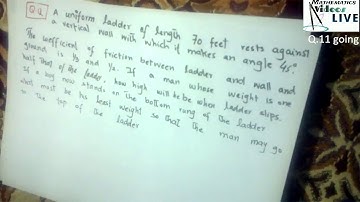 MATHEMATICS
Videos
LIVE
Q.11 going
Q2. A uniform ladder of length 70 feet rests against
a vertical wall with which it makes an angle 45°.
The coefficient of friction between ladder and wall and
ground is 1/3 and 1/2. If a man whose weight is one
half that of the ladder, how high will he be when ladder slips.
If a boy now stands on the bottom rung of the ladder
what must be his least weight so that the man may go
to the top of the ladder